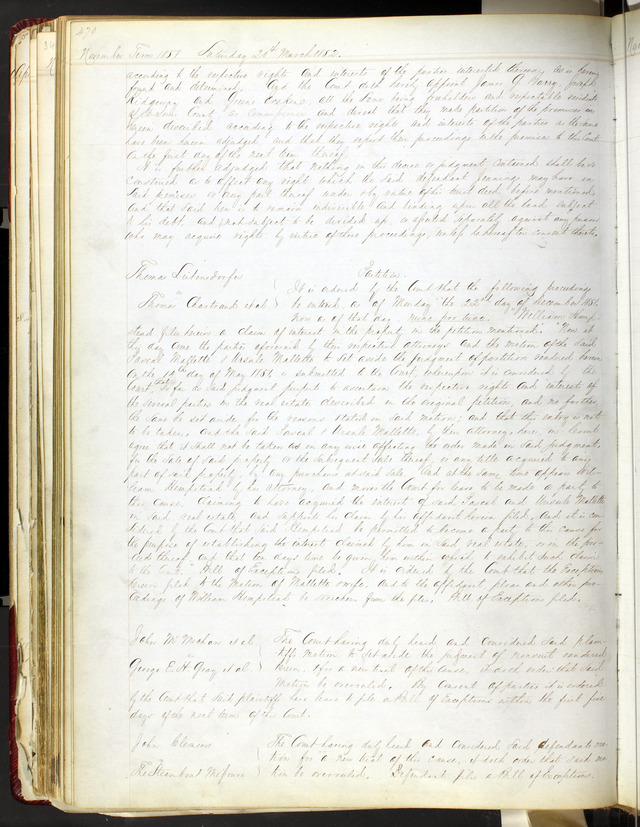 470
November Term 1851 Saturday 20th March 1852.
according to the respective rights and interests of the parties interested therein, as is herein
found and determined. And the Court doth hereby appoint James G Barry, Joseph
Ridgway and Green Erskine all the same being freeholders and respectable residents
of St Louis County as Commissioners and direct that they make partition of the premises
herein described according to the respective rights and interests of the parties as the same
have been herein adjudged and that they report their proceedings in the premises to this Court
on the first day of the next term thereof.
It is further adjudged that nothing in the decree or judgment contained shall be
construed so as to affect any right which the said defendant Jennings may have in
said premises or any part thereof under & by virtue of the trust deed before mentioned,
and that said lien is to remain indivisible and binding upon all the land subject
to his debt and not subject to be divided up or apportioned separately against any person
who may acquire rights by virtue of these proceedings, unless he hereafter consent thereto.
Thomas Leitensdorfer Partition
vs It is ordered by the Court that the following proceedings
Thomas Chartrand et al be entered, as of Monday the 22nd day of December 1851.
Now on that day nunc pro tunc, "William Hemp-
stead files herein a claim of interest in the property in the petition mentioned." Now at
this day come the parties aforesaid by their respective attorneys and the motion of the said
Pascal Mallette & Ursule Mallette to set aside the judgment of partition rendered herein
on the 14th day of May 1851, is submitted to the Court, whereupon it is considered by the
Court that so far as said judgment purports to ascertain the respective rights and interests of
the several parties in the real estate described in the original petition, and no further
the same be set aside for the reasons stated in said motion; and that this entry is not
to be taken, and the said Pascal & Ursule Mallette, by their attorney, here in Court
agree that it shall not be taken as in any wise affecting the order made in said judgment,
for the sale of said property, or the subsequent sale thereof, or any title acquired to any
part of said property by any purchaser at said sale. And at the same time appears Wil-
liam Hempstead by his attorney, and moves the Court for leave to be made a party to
this cause, claiming to have acquired the interest of said Pascal and Ursule Mallette
in said real estate, and supports his claim by his affidavit herein filed, and it is con-
sidered by the Court that said Hempstead be permitted to become a party to the cause for
the purpose of establishing the interest claimed by him in said real estate, or in the pro-
ceeds thereof, and that ten days time be given him within which to exhibit said claim
to the Court." Bill of Exceptions filed. It is ordered by the Court that the Exceptions
herein filed to the Motion of Mallette & wife, and to the affidavit, pleas and other pro-
ceedings of William Hempstead be stricken from the files. Bill of Exceptions filed.
John McMahon et al The Court having duly heard and considered said plain-
vs tiffs motion to set aside the judgment of nonsuit rendered
George E. H. Gray et al herein & for a new trial of this cause, it doth order that said
Motion be overruled. By consent of parties it is ordered
by the Court that said plaintiffs have leave to file a Bill of Exceptions within the first five
days of the next term of this Court.
John Clemens The Court having duly heard and considered said defendants mo-
vs tion for a new trial of this cause, it doth order that said mo-
The Steamboat tion be overruled. Defendant files a Bill of Exceptions.